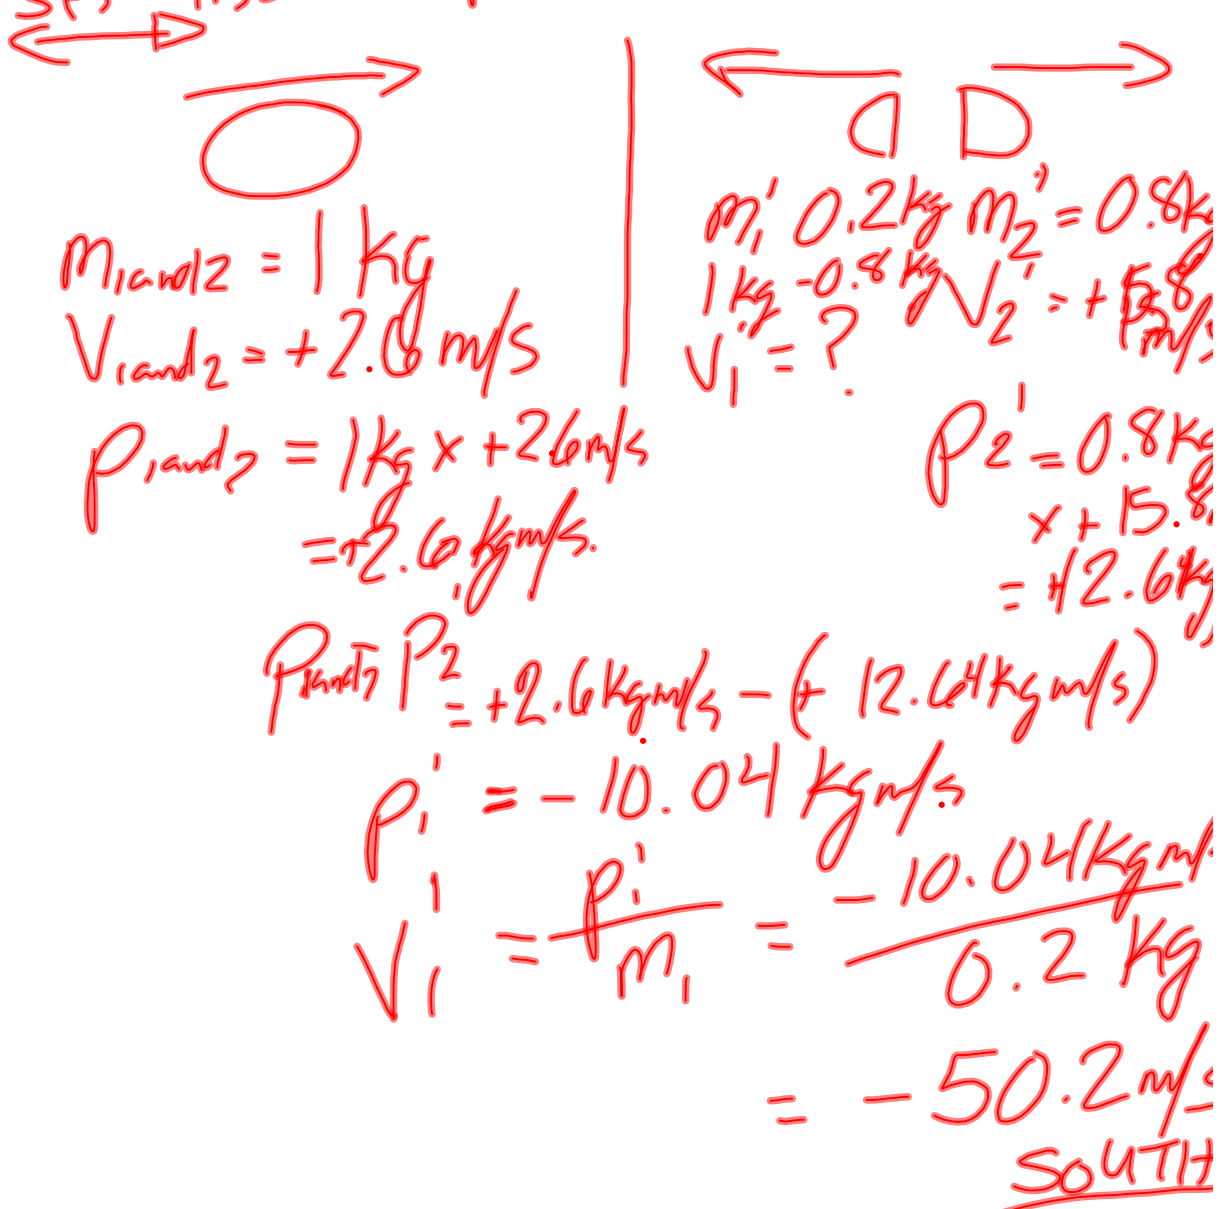 m₁and2 = 1 kg
V₁and2 = +2.6 m/s
P₁and2 = 1kg x +2.6m/s
=+2.6 kgm/s.
m₁' 0.2kg m₂' = 0.8kg
1kg -0.8kg V₂' = +15.8 m/s
V₁' = ?
P₂' = 0.8kg
x +15.8
= +12.64kg
P₁and2 - P₂' = +2.6kgm/s - (+ 12.64kgm/s)
P₁' = -10.04 kgm/s
V₁' = P₁' / m₁ = -10.04kgm/ / 0.2 kg
= -50.2 m/s
SOUTH